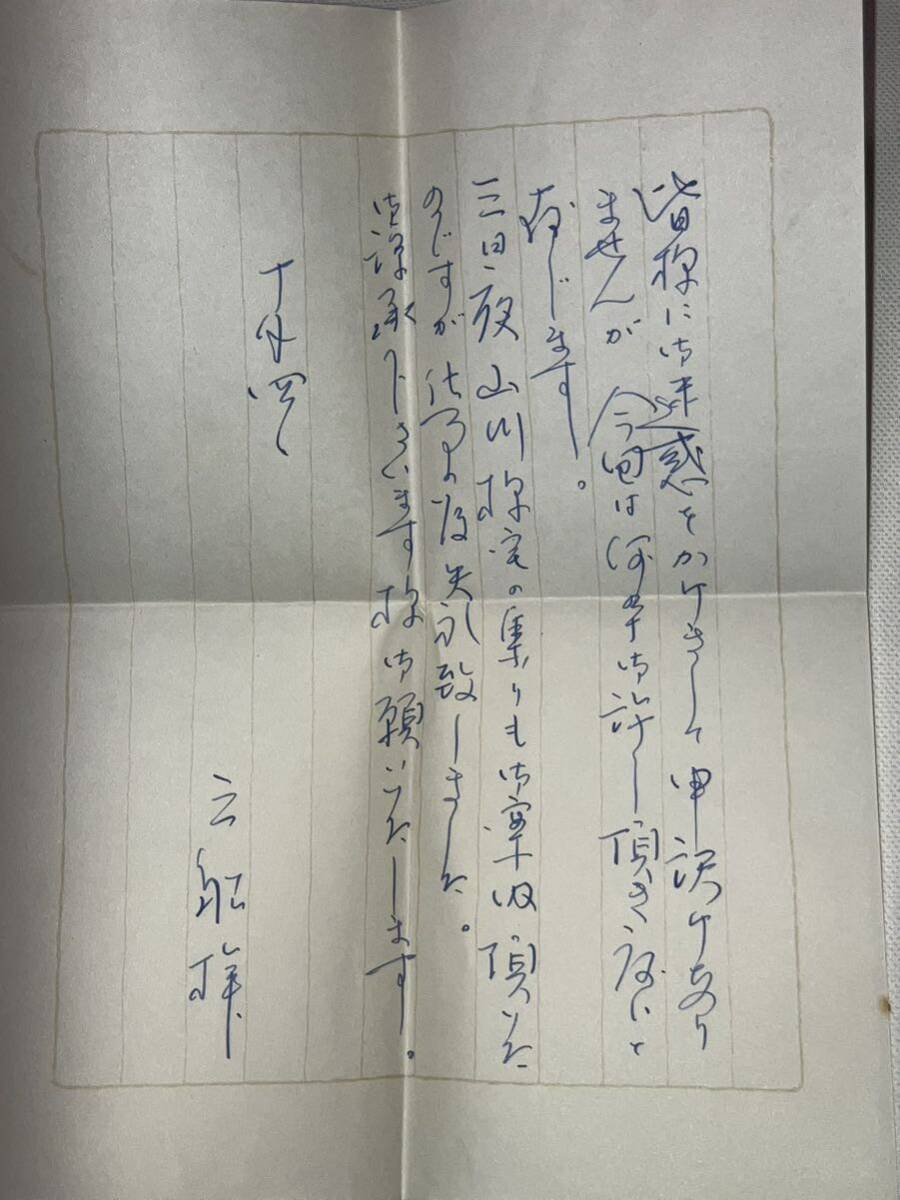 皆様に御迷惑をかけまして申訳けあり
ませんが 今回は何卒御許し頂き度いと
存じます。
三日夜山川様宅の集りも御案内頂いた
のですが 仕事の為失礼致しました。
御諒承下さいます様御願いいたします。
十月四日
云船拝